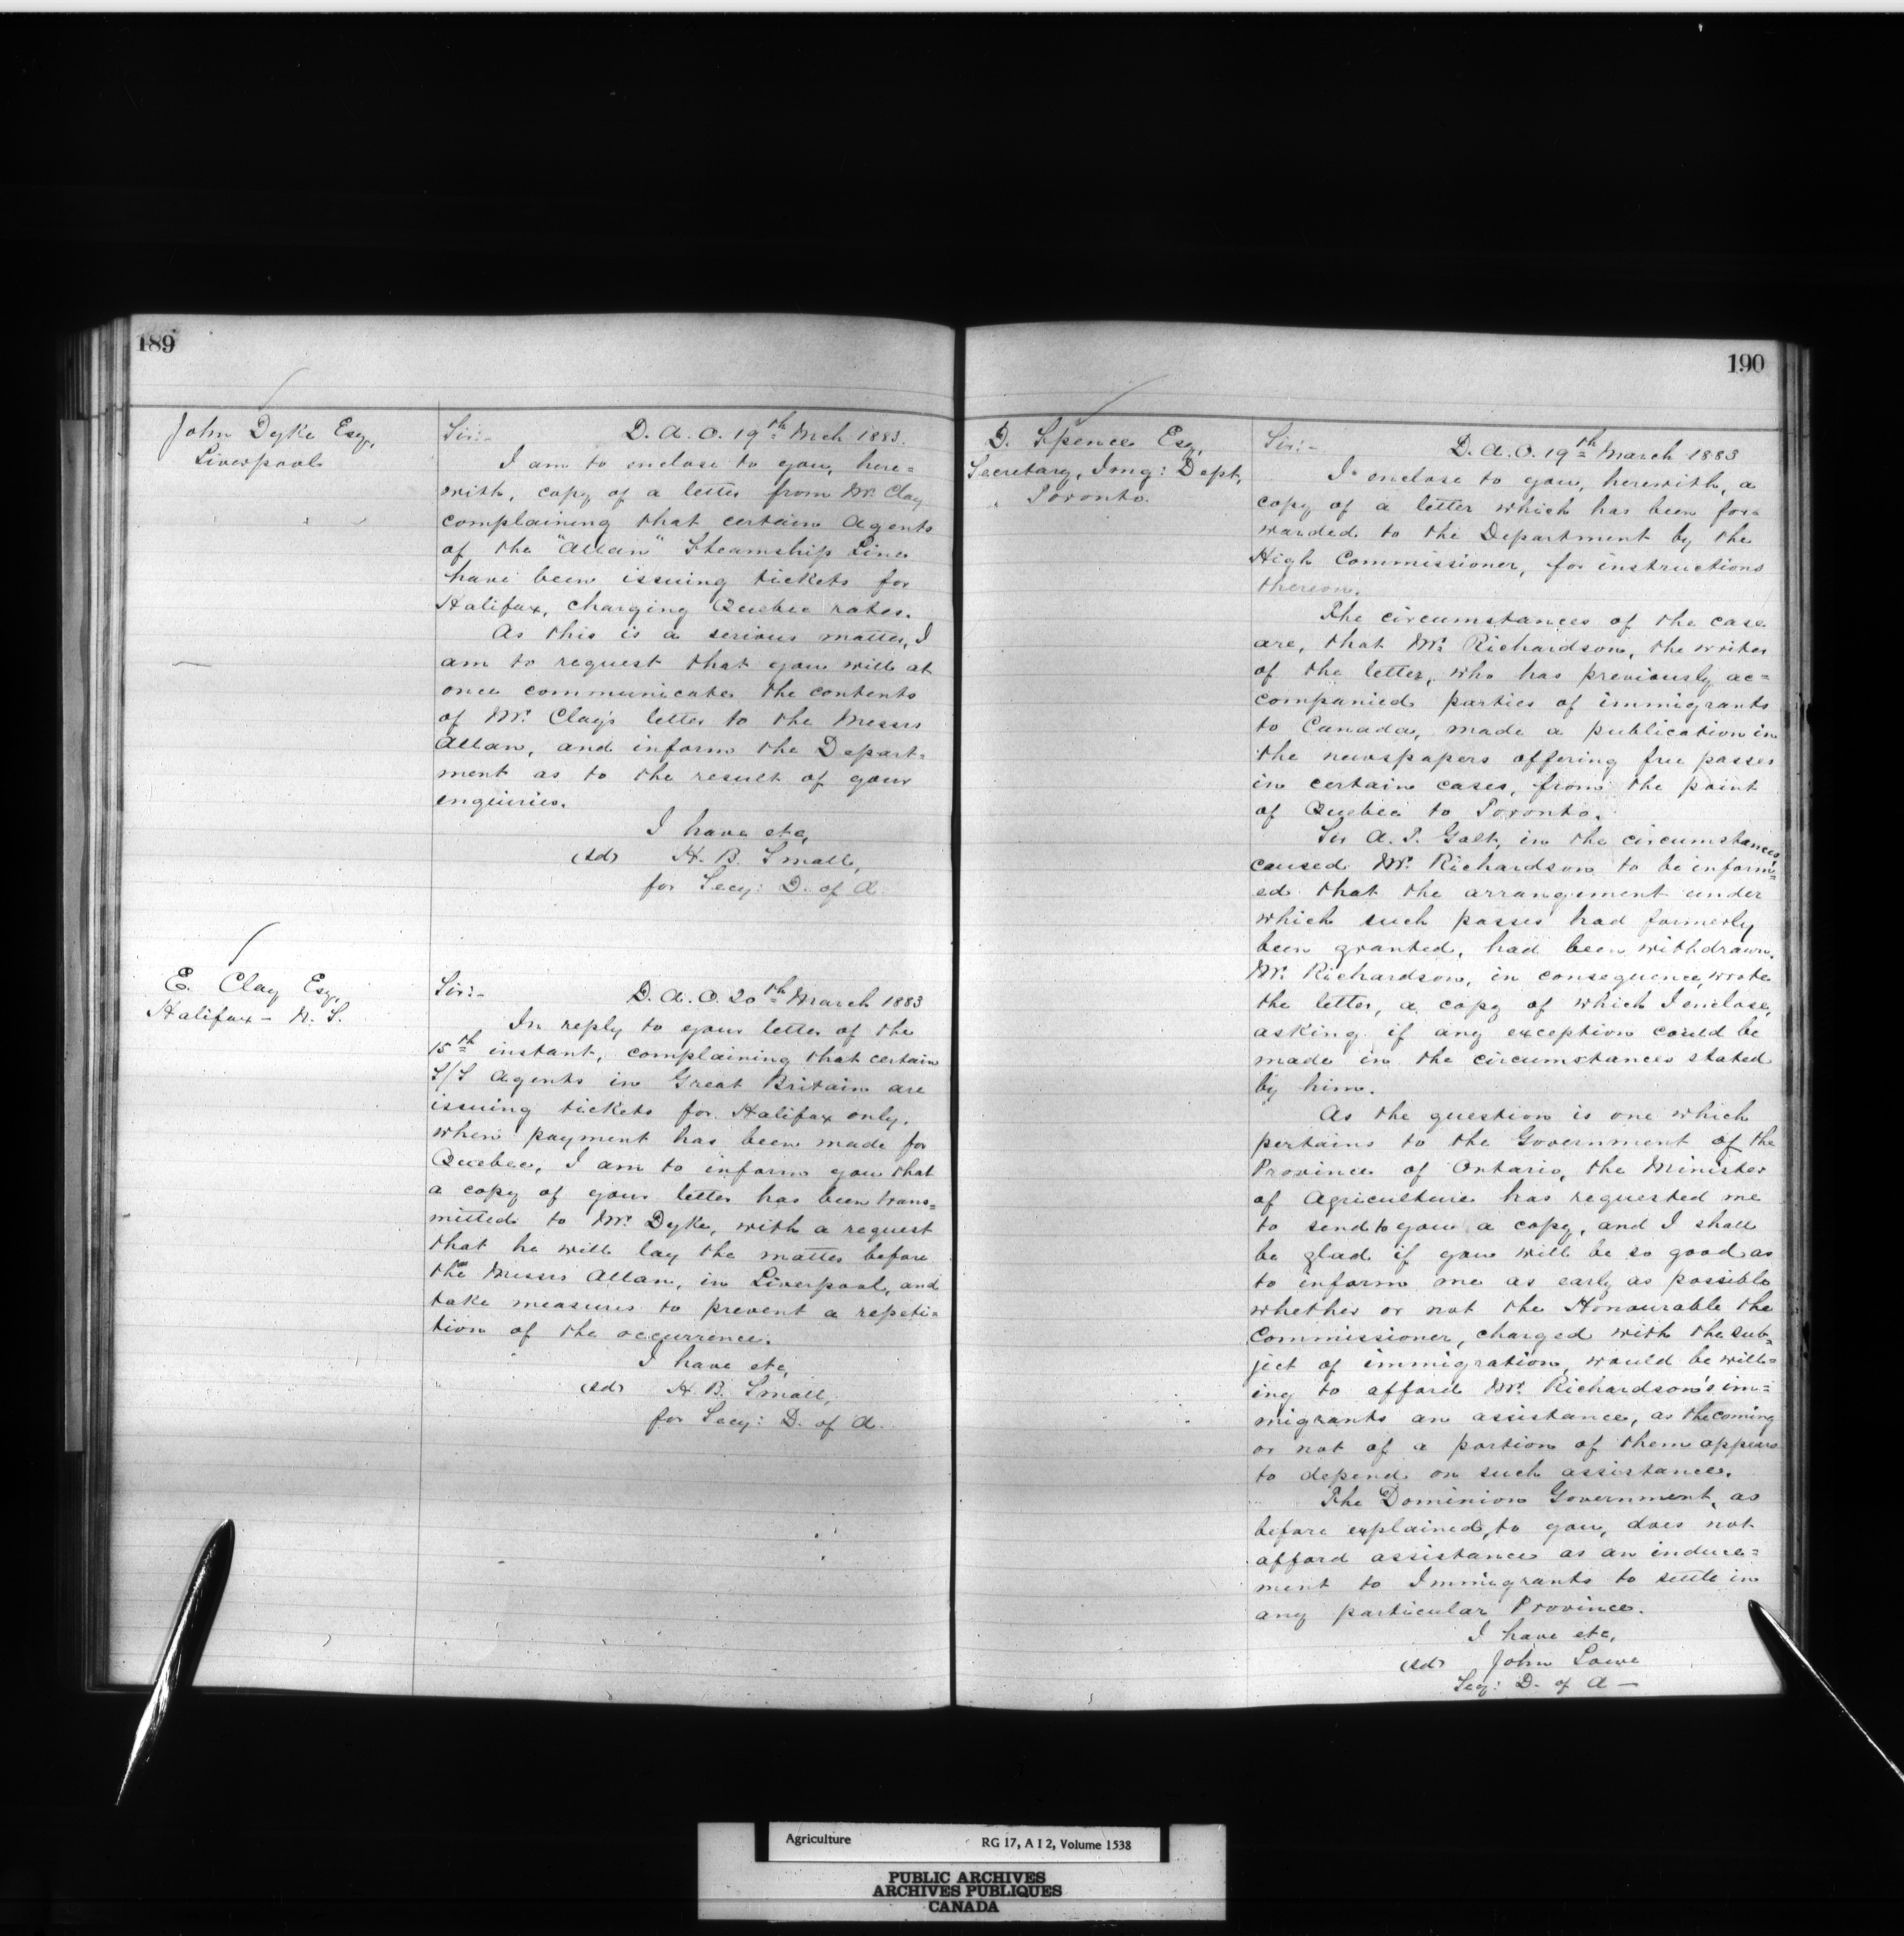 189
John Dyke Esq,
Liverpool
Sir:- D. A. O. 19th Mch 1883.
I am to enclose to you, here=
with, copy of a letter from Mr. Clay
complaining that certain Agents
of the "Allan" Steamship Line
have been issuing tickets for
Halifax, charging Quebec rates.
As this is a serious matter, I
am to request that you will at
once communicate the contents
of Mr. Clay's letter to the Messrs
Allan, and inform the Depart=
ment as to the result of your
enquiries.
I have etc,
(sd) H. B. Small,
for Secy: D. of A.
E. Clay Esq,
Halifax - N. S.
Sir:- D. A. O. 20th March 1883
In reply to your letter of the
15th instant, complaining that certain
S/S Agents in Great Britain are
issuing tickets for Halifax only,
when payment has been made for
Quebec, I am to inform you that
a copy of your letter has been trans=
mitted to Mr. Dyke, with a request
that he will lay the matter before
the Messrs Allan, in Liverpool, and
take measures to prevent a repeti=
tion of the occurrence.
I have etc,
(sd) H. B. Small,
for Secy: D. of A.
190
D. Spence Esq,
Secretary, Img: Dept,
Toronto.
Sir:- D. A. O. 19th March 1883
I enclose to you, herewith, a
copy of a letter which has been for=
warded to the Department by the
High Commissioner, for instructions
thereon.
The circumstances of the case
are, that Mr. Richardson, the writer
of the letter, who has previously ac=
companied parties of immigrants
to Canada, made a publication in
the newspapers offering free passes
in certain cases, from the point
of Quebec to Toronto.
Sir A. T. Galt, in the circumstances,
caused Mr. Richardson to be inform=
ed that the arrangement under
which such passes had formerly
been granted, had been withdrawn.
Mr. Richardson, in consequence, wrote
the letter, a copy of which I enclose,
asking if any exception could be
made in the circumstances stated
by him.
As the question is one which
pertains to the Government of the
Province of Ontario, the Minister
of Agriculture has requested me
to send to you a copy, and I shall
be glad if you will be so good as
to inform me as early as possible
whether or not the Honourable the
Commissioner, charged with the sub=
ject of immigration, would be will=
ing to afford Mr. Richardson's im=
migrants an assistance, as the coming
or not of a portion of them appears
to depend on such assistance.
The Dominion Government, as
before explained, to you, does not
afford assistance as an induce=
ment to Immigrants to settle in
any particular Province.
I have etc,
(sd) John Lowe
Secy: D. of A -
Agriculture RG 17, A I 2, Volume 1538
PUBLIC ARCHIVES
ARCHIVES PUBLIQUES
CANADA